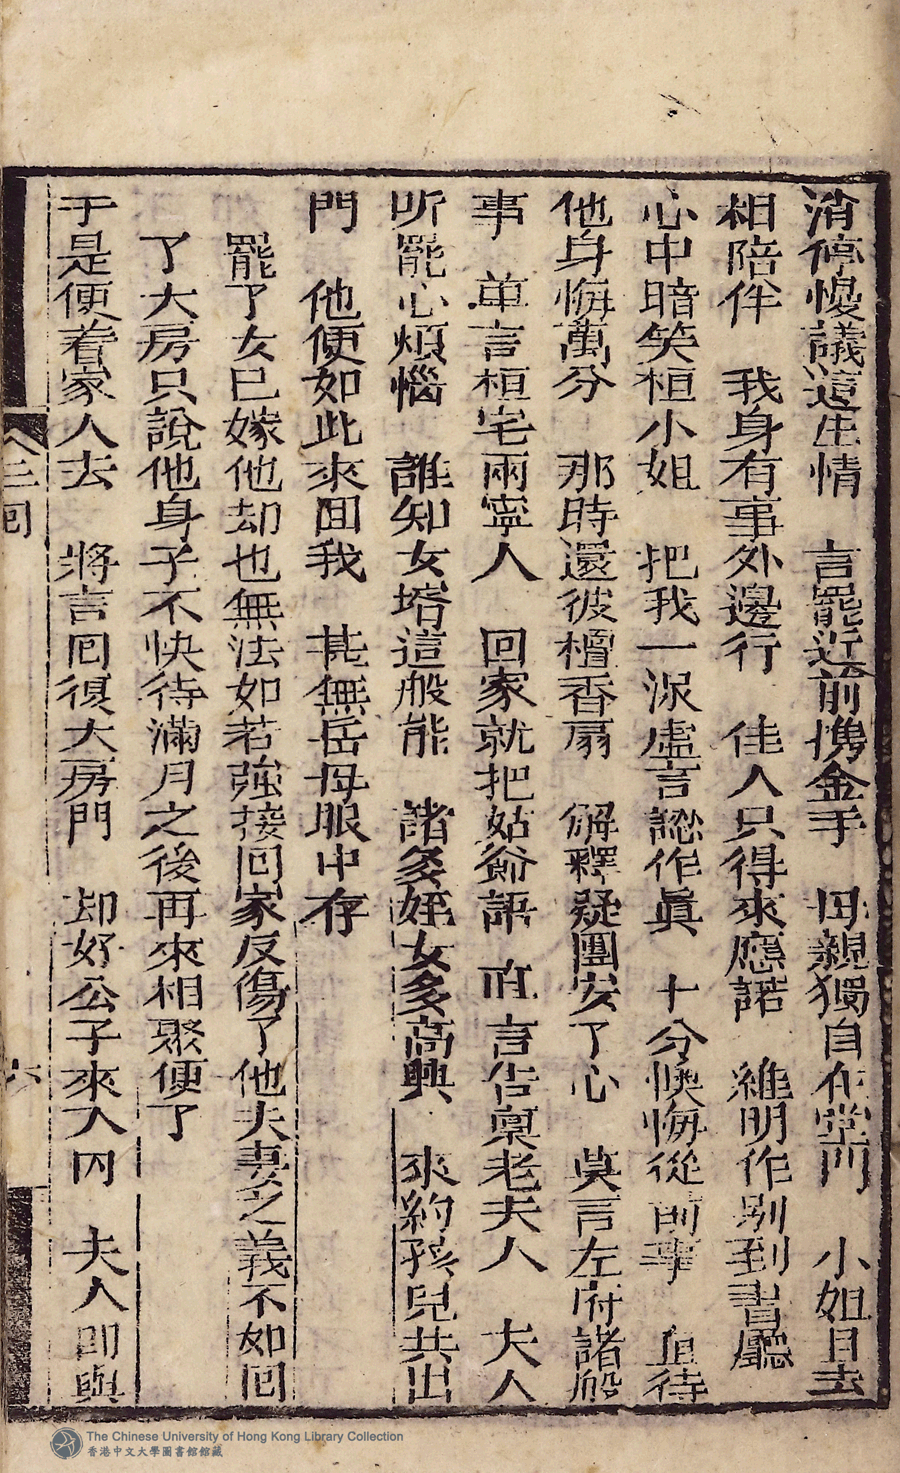 消停慢議這生情　言罷近前携金手　母親獨自在堂門　小姐且去
相陪伴　我身有事外邊行　佳人只得來應諾　維明作别到書廳
心中暗笑桓小姐　把我一派虛言認作真　十分懊悔從前事　且待
他身悔萬分　那時還彼檀香扇　解釋疑團安了心　莫言左府諸般
事　单言桓宅兩寧人　回家就把姑爺語　直言告稟老夫人　夫人
听罷心煩惱　誰知女壻這般能　諸多姪女多高興　來約孩兒共出
門　他便如此來回我　甚無岳母眼中存
罷了女已嫁他却也無法如若強接回家反傷了他夫妻之義不如回
了大房只說他身子不快待滿月之後再來相聚便了
于是便着家人去　將言回復大房門　却好公子來入内　夫人即與
三回
六
The Chinese University of Hong Kong Library Collection
香港中文大學圖書館館藏